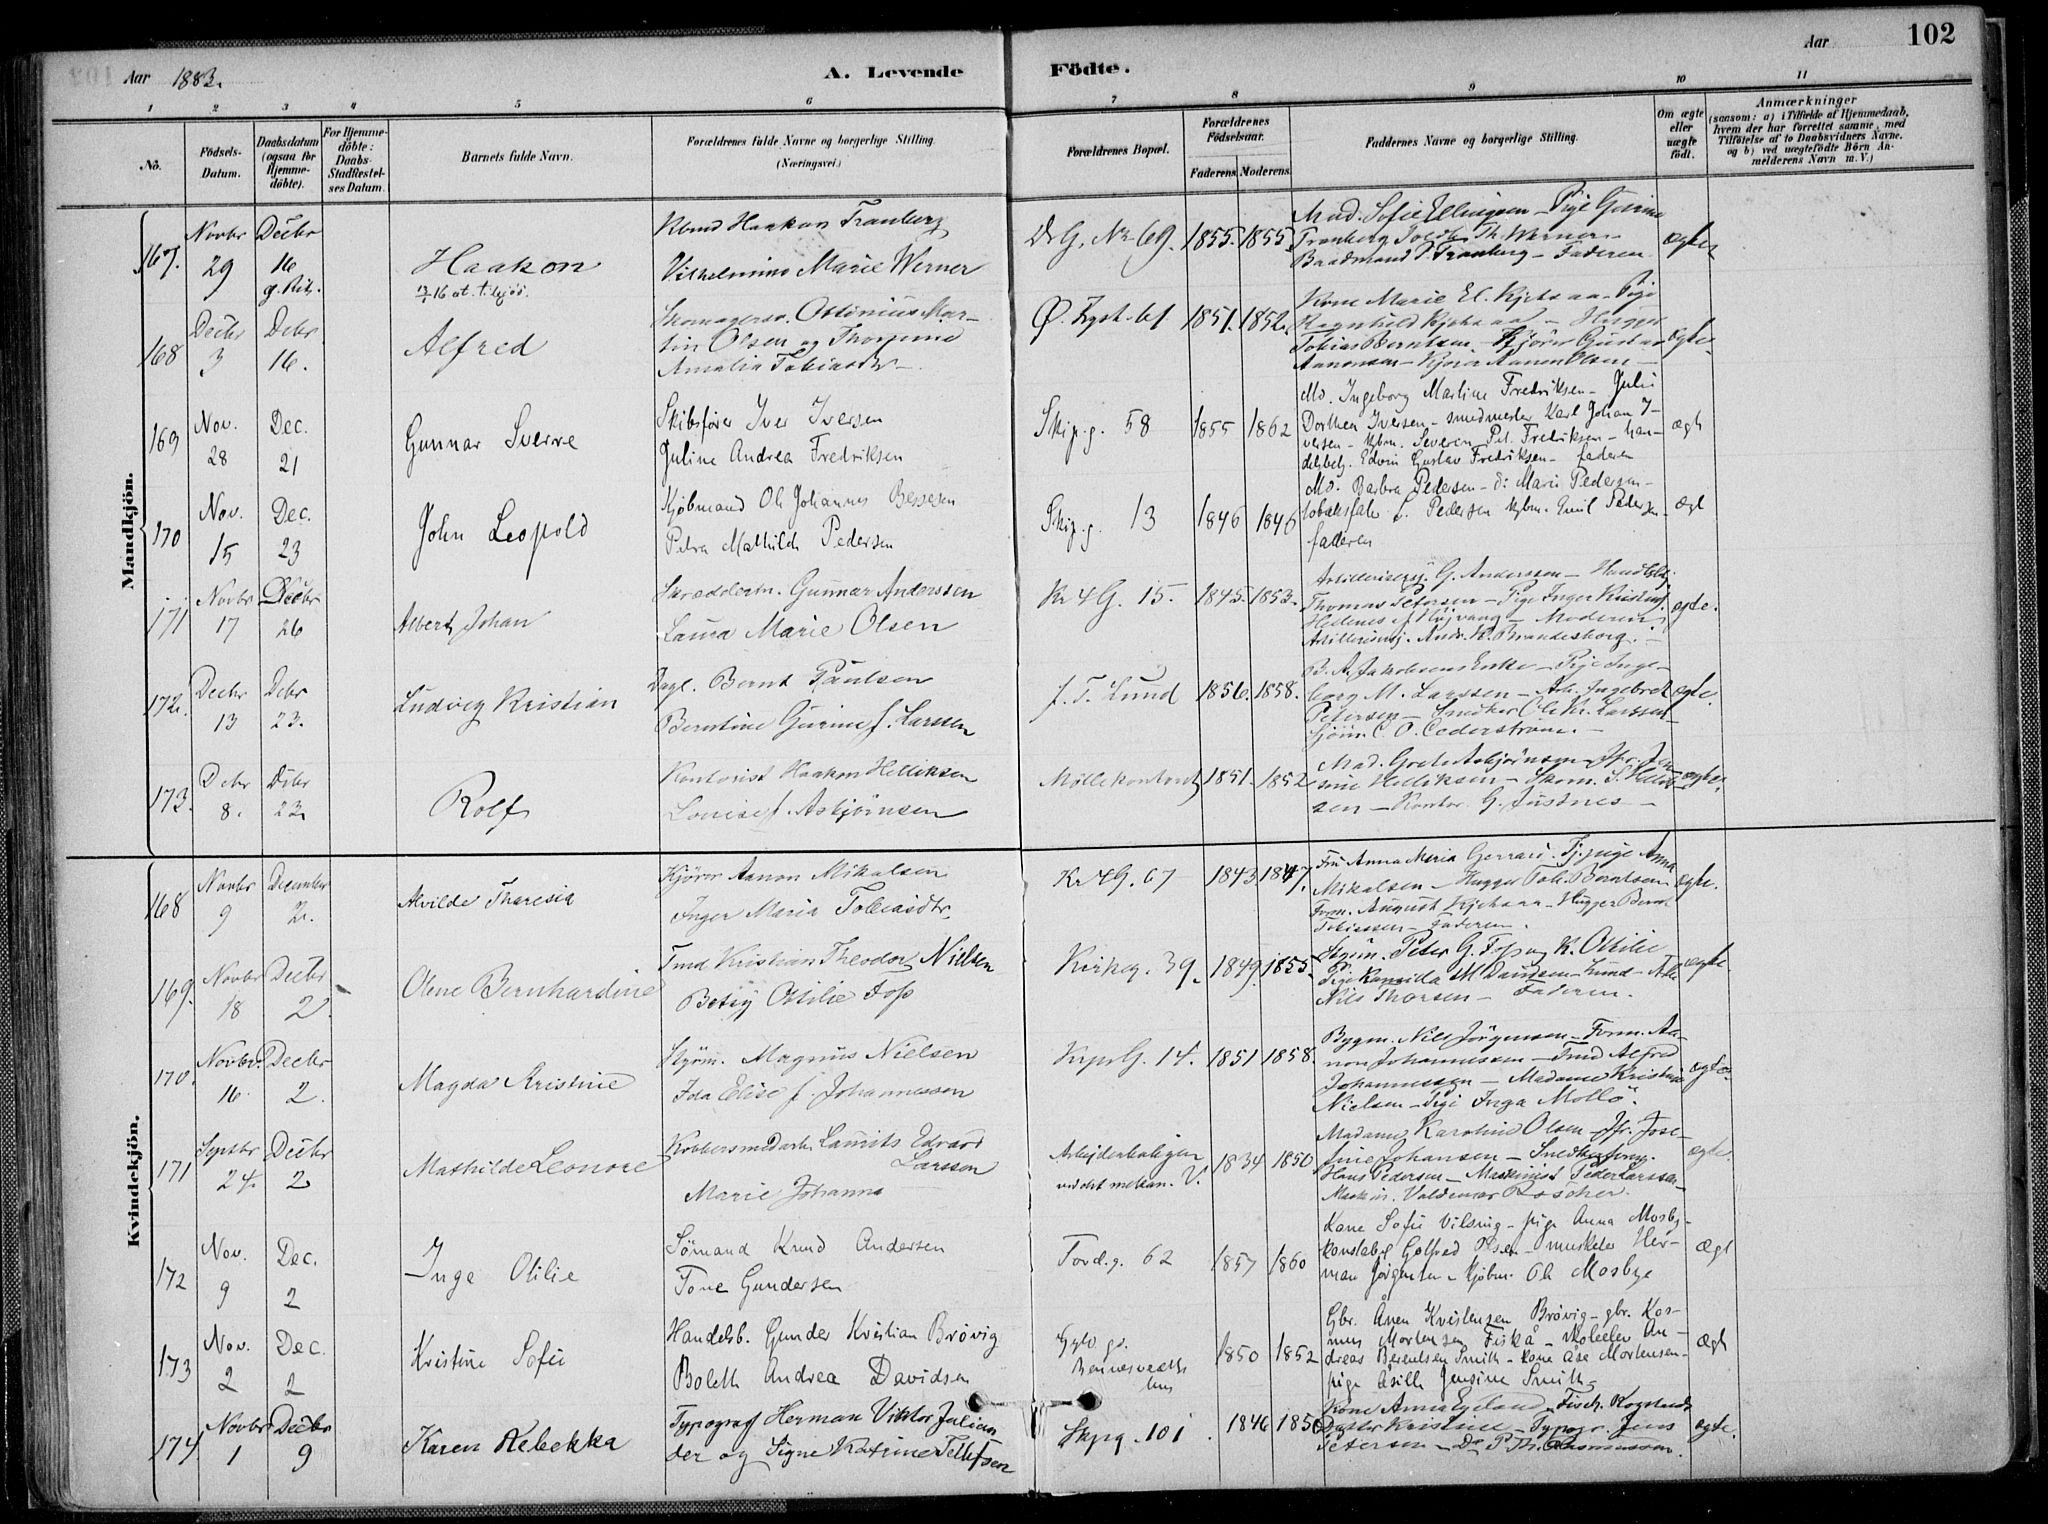 Aar 1883.
A. Levende Födte.
Aar
102
1 2 3 4 5 6 7 8 9 10 11
No.
Födsels-Datum.
Daabsdatum (ogsaa for Hjemme-döbte).
For Hjemme-döbte: Daabs-Stadfæstel-ses Datum.
Barnets fulde Navn.
Forældrenes fulde Navne og borgerlige Stilling. (Næringsvei.)
Forældrenes Bopæl.
Forældrenes Födselsaar.
Faderens. Moderens.
Faddernes Navne og borgerlige Stilling.
Om ægte eller uægte födt.
Anmærkninger (saasom: a) i Tilfælde af Hjemmedaab, hvem der har forrettet samme, med Tilföielse af to Daabsvidners Navne, og b) ved uægtefödte Börn An-melderens Navn m. V.)
Mandkjön.
167. Novbr 29 Decbr 16
Haakon
Haakon Tranberg
Vilhelmine Marie Werner
Dr G. Nr 69. 1855. 1855.
Mad. Sofie Ellingsen - Pige Gurine
Tranberg Th. Werner
Baadmand P. Tranberg - Faderen
ægte
168 Decbr 3 Debr 16.
Alfred
Skomagersv. Ottinius Mar-
tin Olsen og
Amalia Tobiasdtr
Ø. 61 1851. 1852.
Kone Marie El. Kjetsaa - Pige
Ragnhild Kjetsaa - Hugger
Tobias Berntsen - Kjörer Gustav
Aanonsen - Kjörer Aanen Olsen -
ægte
169 Nov. 28 Dec. 21
Gunnar Sverre
Skibsfører Iver Iversen
Juline Andrea Fredriksen
Skip.g. 58 1855 1862
Md. Ingeborg Martine Fredriksen - Julie
Dorthea Iversen - smedmester Karl Johan I-
versen - kjbm. Severin Pet. Fredriksen - han-
delsbetj. Edvin Gustav Fredriksen - faderen
ægt
170 Nov. 15 Dec. 23
John Leopold
Kjøbmand Ole Johannes Bessesen
Petra Mathilde Pedersen
Skip.g. 13 1846 1846
Md. Barbra Pedersen - d: Marie Pedersen -
L. Pedersen kjbm. Emil Pedersen -
faderen
ægt
171 Novbr 17 Decbr 26
Albert Johan
Skredderm. Gunnar Anderssen
Laura Marie Olsen
Kr 4 G. 15. 1845. 1853.
G. Anderssen - Handelsbtj.
Thomas Petersen - Pige Inger
Moderen
Andr. K. Brandesborg.
ægte.
172. Decbr 13 Debr 23.
Ludvig Kristian
Dagl. Bernt Paulsen
Berntine Gurine f. Larssen
f. T. Lund 1856. 1858.
B. A. Jakobsens Enke - Pige Inge-
borg M. Larssen - Arb. Ingebret
Petersen - Snedker Ole Kr. Larssen
Sjöm. C. O. Cederström. -
ægte.
173. Debr 8. Debr 23
Rolf
Kontorist Haakon Helliksen
Louise f. Asbjörnsen
Möllekontoret 1851. 1852
Mad. Grete Asbjörnsen Jfr. Jen-
sine Helliksen - Skom. S. Hellik-
sen - Kontor. G. Justnes -
ægte.
Kvindekjön.
168 Novbr 9 December 2.
Alvilde Tharesia
Kjörer Aanon Mikalsen
Inger Maria Tobiasdtr.
Kr 4 G. 67 1843 1847.
Fru Anna Maria Gerrard - Tj.pige Anna
Mikalsen - Hugger Tob. Berntsen
Form. August Kjetsaa - Hugger Bernt
Tobiassen - Faderen.
ægte.
169. Novbr 18 Decbr 2.
Olene Bernhardine
Tmd Kristian Theodor Nielsen
Betsy Otilie Foss
Kirkeg. 39. 1849. 1855.
Skjöm. Peter G. Foss og K. Ottilie
Pige Ragnilda M. Danielsen - Lund - Arb
Nils Thorsen - Faderen.
ægte.
170. Novbr. 16 Decbr 2.
Magda Kristine
Styrm. Magnus Nielsen
Ida Elise f. Johannessen
KrpsG. 14. 1851 1858.
Bygm. Nils Jörgensen - Form. Aa-
non Johannessen - Tmd Alfred
Johannessen - Madame Kristine
Nielsen - Pige Inga Mollö.
ægte.
171 Septbr 24. Decbr 2
Mathilde Leonore
Kobbersmedarb. Laurits Edvard
Larssen
Marie Johanna
Arbejderboligen
ved det mekan. V. 1834 1850
Madame Karoline Olsen - Jfr. Jose-
fine Johansen -
Hans Pedersen - Maskinist Peder Larssen
Maskin. Valdemar Roscher.
ægte.
172 Nov. 9 Dec. 2
Inge Otilie
Sömand Knud Andersen
Tone Gundersen
Tord.g. 62 1857 1860
Kone Sofie Vilsing - pige Anna Mosby -
konstabel Gotfred Olsen - musketer Her-
man Jörgensen - kjöbm. Ole Mosbye
ægt
173 Nov. 2 Dec. 2
Kristine Sofie
Handelsb. Gunder Kristian Brövig
Bolette Andrea Davidsen
Gyld. g.
Bennesvedts
hus 1850 1852
Gbr. Ånen Kristensen Brövig - gbr. Ras-
mus Mortensen Fiskå - skoleelev An-
dreas Berentsen Smith - kone Åse Mortensen -
pige Asille Jensine Smith
ægt
174. Novbr 1 Decbr 9
Karen Rebekka
Typograf Herman Viktor Julian
der og Signe Katrine Tellefsen
Skpg. 101. 1846 1850
Kone Anna Egeland - Fisch.
Datter Kristine - Typogr. Jens
Petersen - Do P. Th. Rasmussen.
ægte.